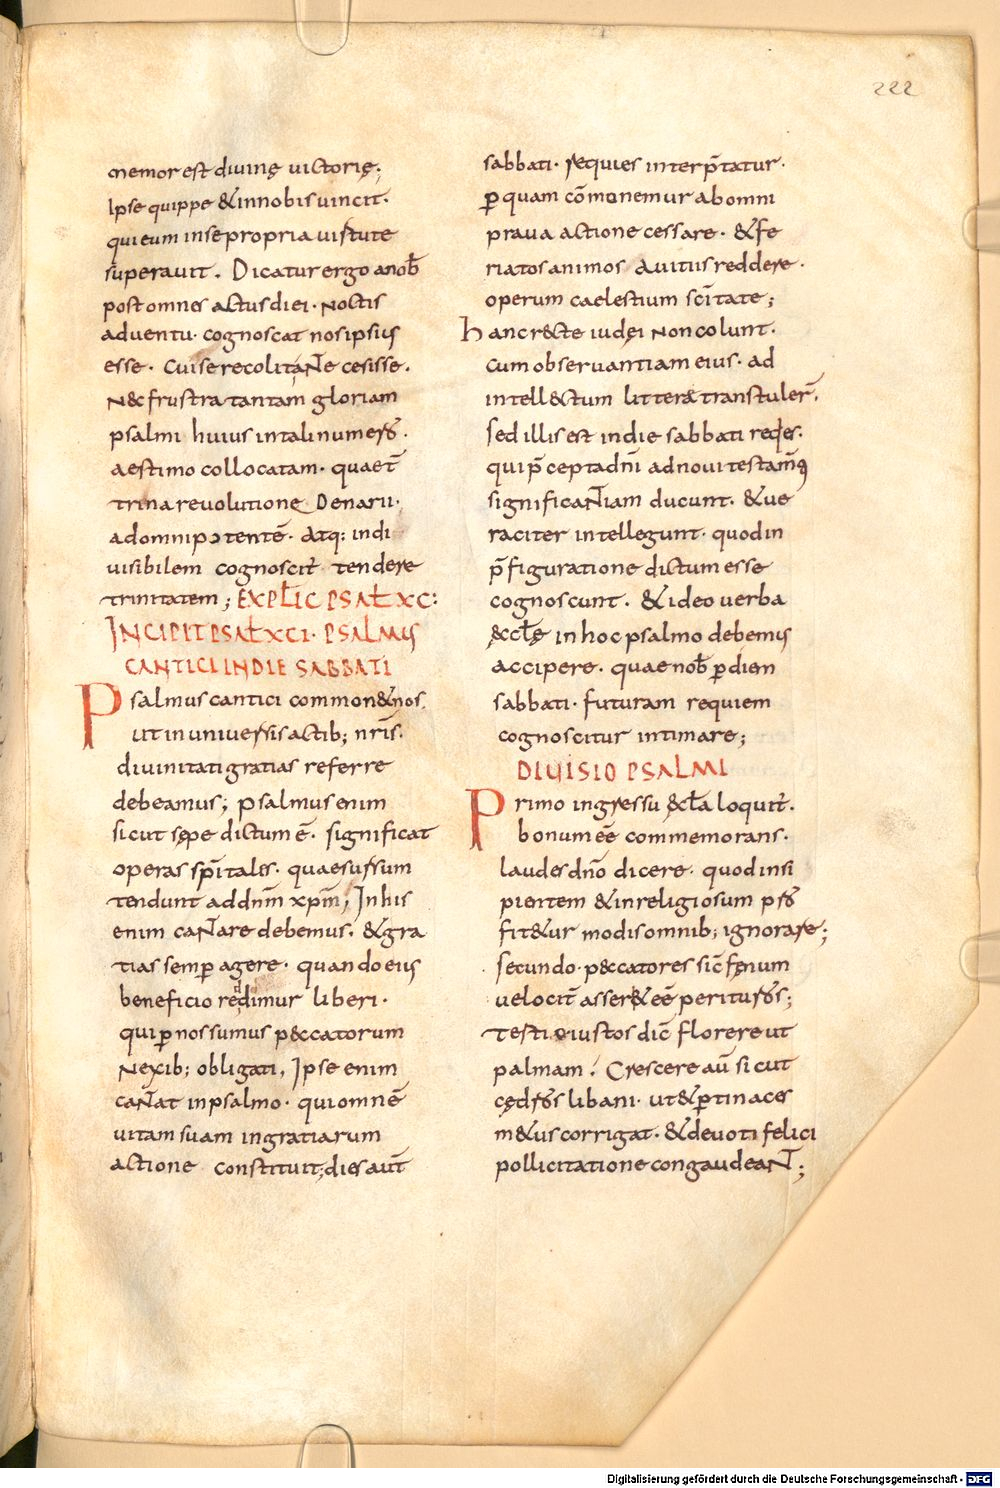 222
memor est divinę victorię;
Ipse quippe & in nobis vincit·
qui eum in se propria virtute
superavit. Dicatur ergo a nob̄
post omnes actus diei· Noctis
adventu· cognoscat nos ipsius
esse· cui se recolit ante cesisse.
N&c frustra tantam gloriam
psalmi huius in tali numero·
aestimo collocatam· quae t̄
trina revolutione Denarii·
ad omnipotentē· Atq: indi
visibilem cognoscit̄ tendere
trinitatem; EXPLIC PSAŁ XC:
INCIPIT PSAŁ XCI· PSALMUS
CANTICI IN DIE SABBATI
Psalmus cantici common& nos.
ut in universis actib; nr̄is·
divinitati gratias referre
debeamus; psalmus enim
sicut sępe dictum ē· significat
operas sp̄itales· quae sursum
tendunt ad dn̄m xp̄m; In his
enim cantare debemus· & gra
tias semp̄ agere· quando eius
beneficio redimur liberi·
qui p̄ nos sumus p&ccatorum
Nexib; obligati, Ipse enim
cantat in psalmo· qui omnē
vitam suam in gratiarum
actione constituit; dies aut̄
sabbati· requies interp̄tatur·
p̄ quam cōmonemur ab omni
prava actione cessare· & fe
riatos animos a vitiis reddere·
operum caelestium sc̄itate;
hanc recte iudęi non colunt·
cum observantiam eius· ad
intell&ctum litterę transtuler̄·
sed illis est in die sabbati reqes·
qui p̄cepta dn̄i ad novi testam̄
significantiam ducunt· & ve
raciter intellegunt· quod in
p̄figuratione dictum esse
cognoscunt· & ideo verba
&ccłę in hoc psalmo debemus
accipere· quae nob̄ p̄ diem
sabbati· futuram requiem
cognoscitur intimare;
DIVISIO PSALMI
Primo ingressu &cła loquit̄·
bonum ēē commemorans·
laudes dn̄o dicere· quod insi
pientem & inreligiosum pro
fit&ur modis omnib; ignorare;
secundo· p&ccatores sic̄ fęnum
velocit̄ asser& ēē perituros;
Testio iustos dic̄ florere ut
palmam. Crescere aū sicut
cędros libani· ut & p̄tinaces
m&us corrigat· & devoti felici
pollicitatione congaudeant;
Digitalisierung gefördert durch die Deutsche Forschungsgemeinschaft - DFG